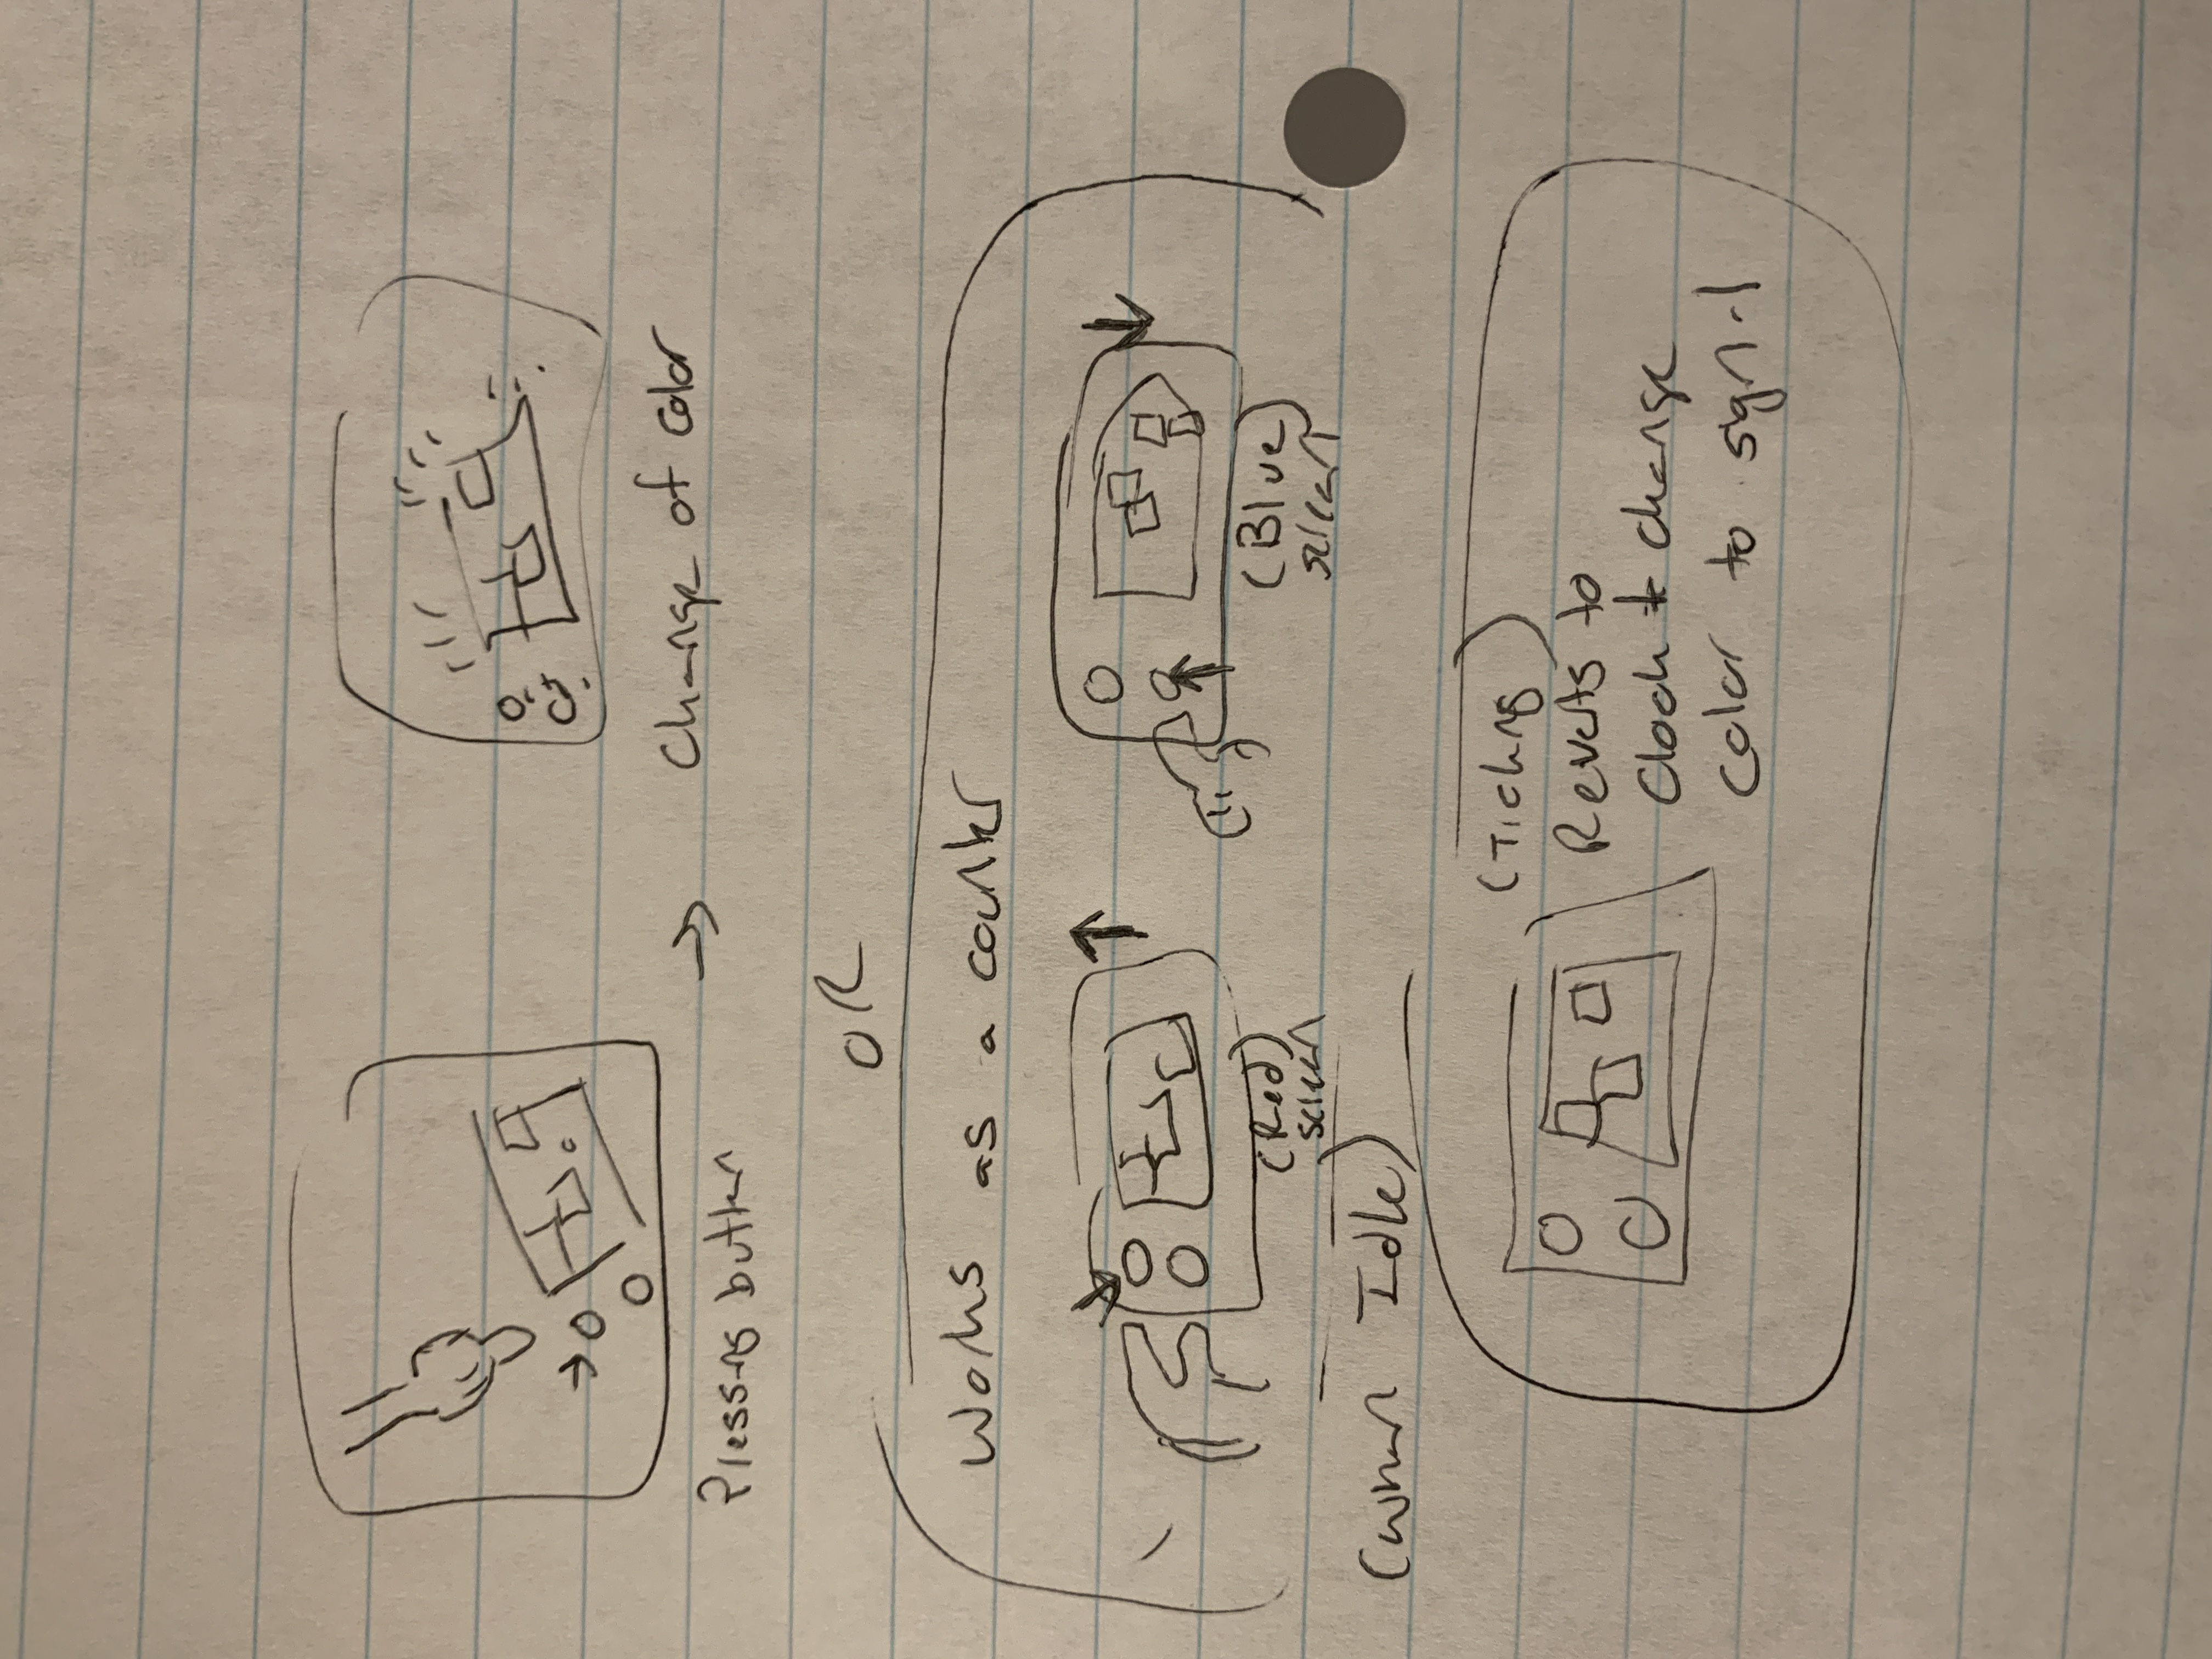 Pressing button
→
Change of color
OR
Works as a counter
(Red)
screen
(Blue)
screen
(when Idle)
(Ticking)
Reverts to
Clock & change
color to signal